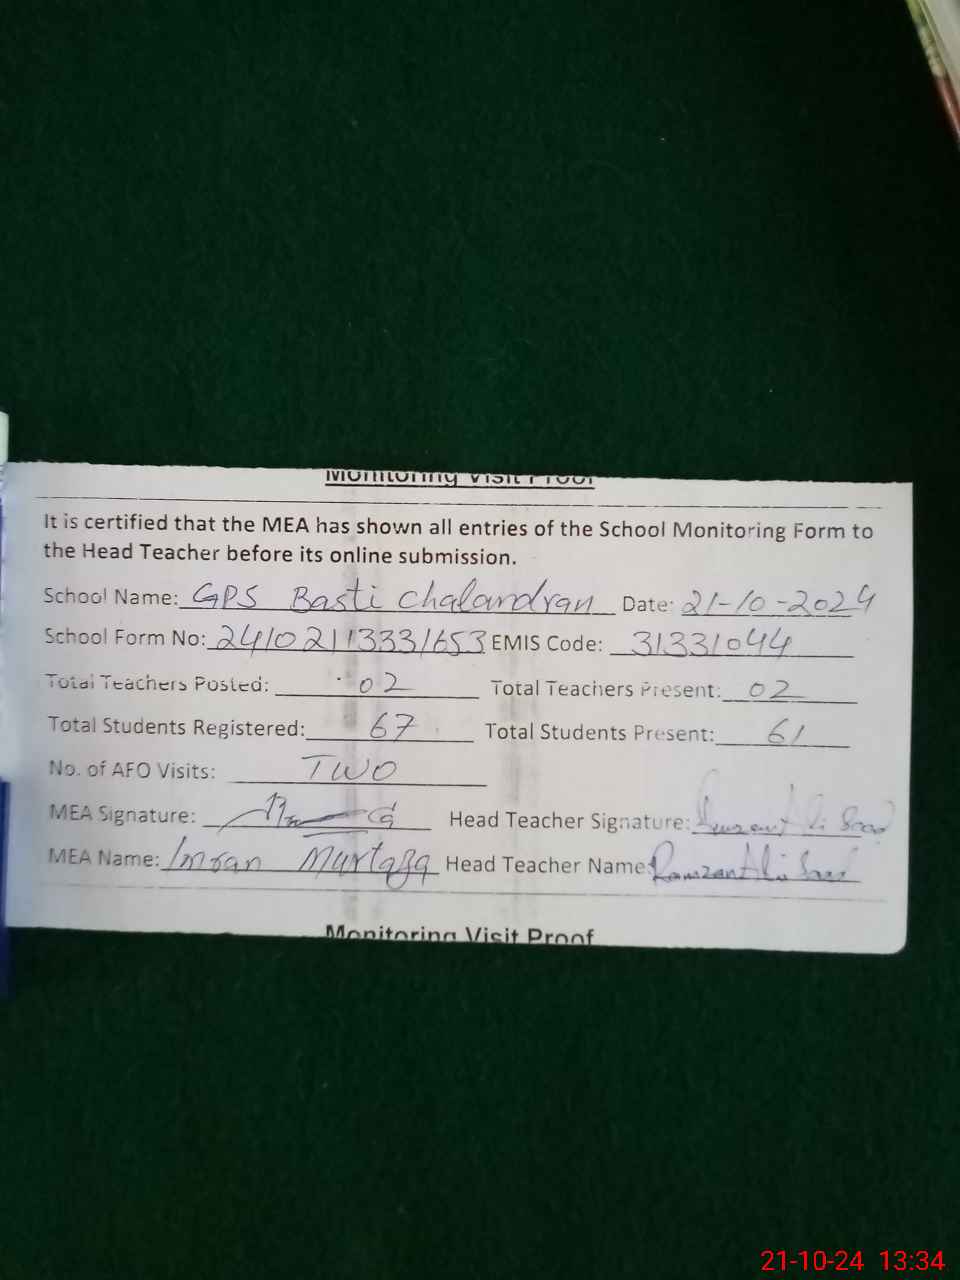 Monitoring Visit Proof
It is certified that the MEA has shown all entries of the School Monitoring Form to
the Head Teacher before its online submission.
School Name: GPS Basti Chalandran Date: 21-10-2024
School Form No: 24102113331653 EMIS Code: 31331044
Total Teachers Posted: 02 Total Teachers Present: 02
Total Students Registered: 67 Total Students Present: 61
No. of AFO Visits: TWO
MEA Signature: Head Teacher Signature:
MEA Name: Imran Murtaza Head Teacher Name: Ramzan Ali
Monitoring Visit Proof
21-10-24 13:34